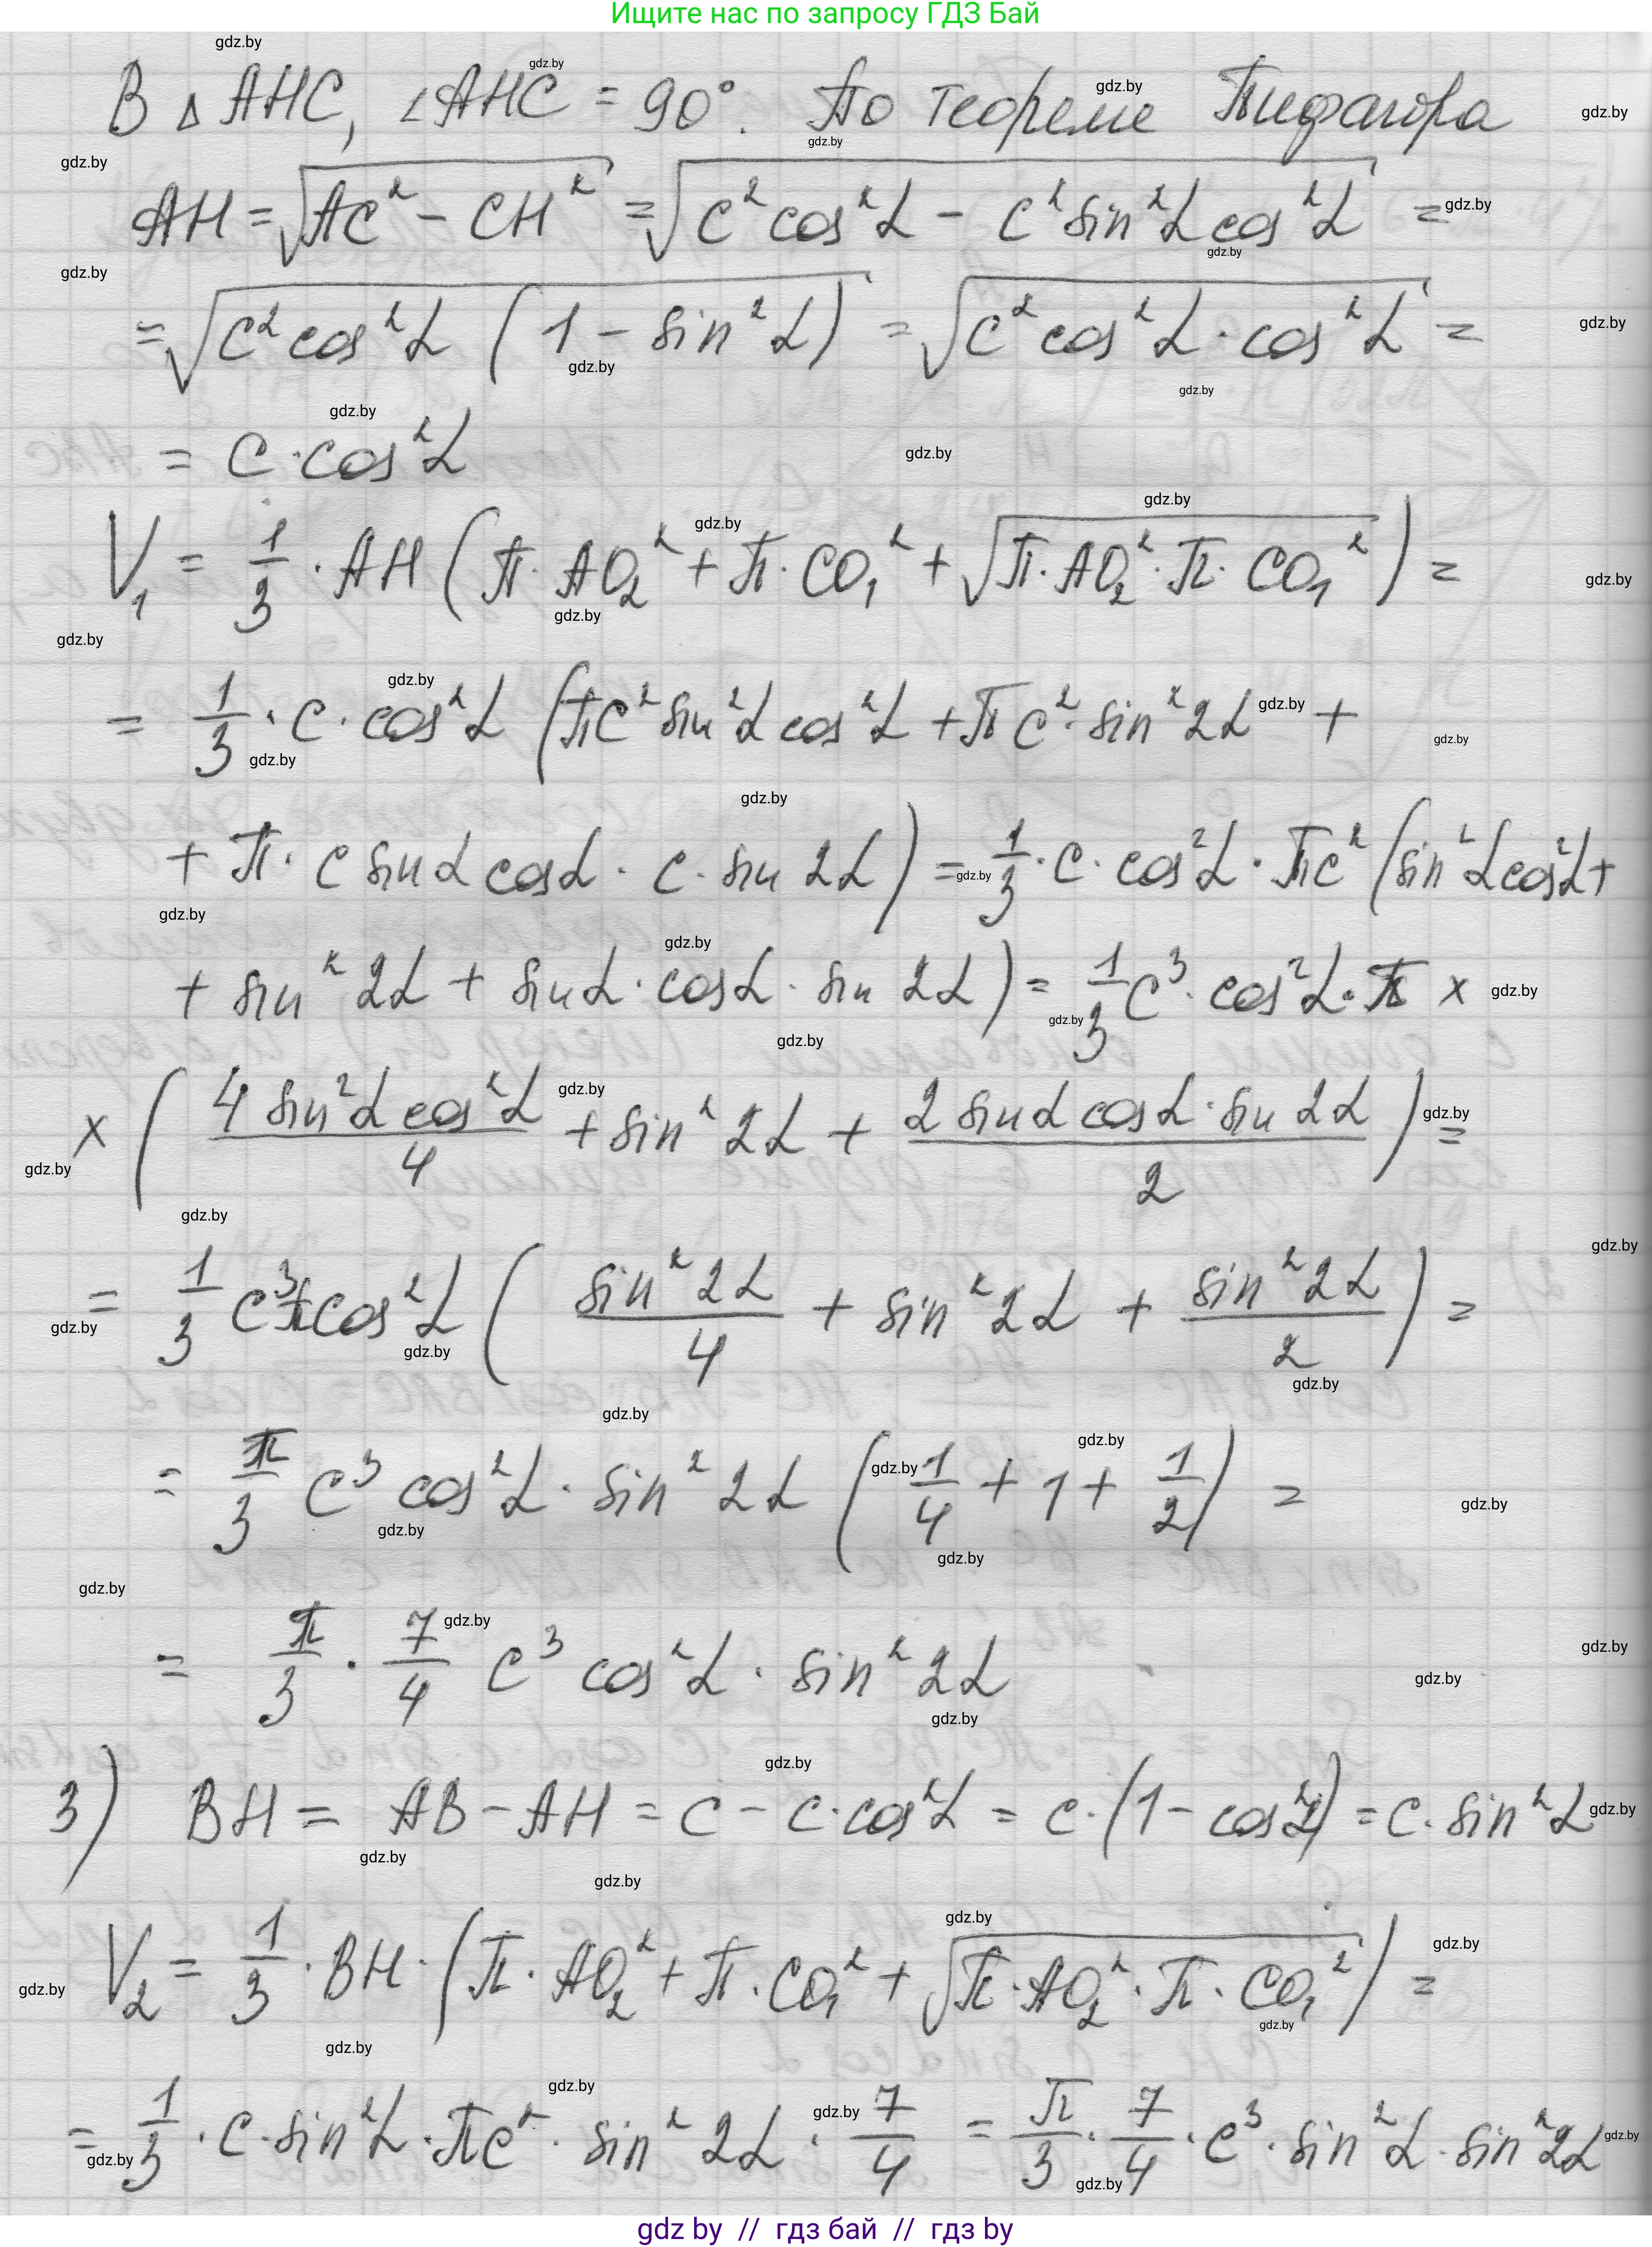 Ищите нас по запросу ГДЗ Бай
В △ AHC, ∠AHC = 90°. По теореме Пифагора
AH = √(AC² − CH²) = √(c² cos²α − c² sin²α cos²α) =
= √(c² cos²α (1 − sin²α)) = √(c² cos²α · cos²α) =
= c · cos²α
V₁ = 1/3 · AH (π · AO₂² + π · CO₁² + √(π · AO₂² · π · CO₁²)) =
= 1/3 · c · cos²α (πc² sin²α cos²α + πc² · sin²2α +
+ π · c sinα cosα · c · sin 2α) = 1/3 · c · cos²α · πc² (sin²α cos²α +
+ sin²2α + sinα · cosα · sin 2α) = 1/3 c³ · cos²α · π ×
× (4 sin²α cos²α / 4 + sin²2α + 2 sinα cosα · sin 2α / 2) =
= 1/3 c³π cos²α (sin²2α / 4 + sin²2α + sin²2α / 2) =
= π/3 c³ cos²α · sin²2α (1/4 + 1 + 1/2) =
= π/3 · 7/4 c³ cos²α · sin²2α
3) BH = AB − AH = c − c · cos²α = c · (1 − cos²α) = c · sin²α
V₂ = 1/3 · BH · (π · AO₂² + π · CO₁² + √(π · AO₂² · π · CO₁²)) =
= 1/3 · c · sin²α · πc² · sin²2α · 7/4 = π/3 · 7/4 · c³ · sin²α · sin²2α
gdz by // гдз бай // гдз by